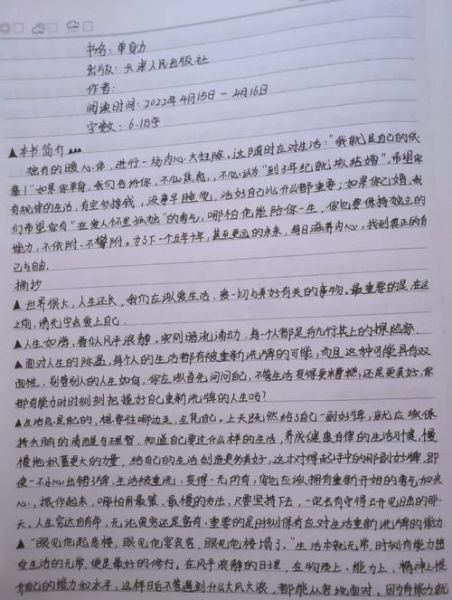 书名：单身力
出版：天津人民出版社
作者：
阅读时间：2022年4月15日－4月16日
字数：6.1万字
▲本书简介
独有的暖心伴，进行一场内心大扫除，这随时应对生活："我就是自己的依
靠！"如果你单身，我们告诉你，不必焦急，不必认为"到了年纪就该结婚"，希望你
有规律的生活，有空多挣钱，没事早睡觉，活好自己比什么都重要；如果你已婚，我
们希望你有"在爱人怀里孤独"的勇气，哪怕他能陪你一生，你也要保持独立的
能力，不依附、不攀附。为了下一个五年十年，甚至更远的未来，每日滋养内心，找到真正的自
己与自由。
摘抄
▲世界很大，人生还长，我们应该爱生活，爱一切与美好有关的事物。最重要的是，在这
之前，请先学会爱上自己。
▲人生如海，看似风平浪静，实则暗流涌动，每一个人都是航行其上的探险家
▲面对人生的际遇，每个人的生活都有被重新洗牌的可能，而且这种可能具有双
面性，别管别人的人生如何，你应该首先问问自己，不管生活变得更糟糕，还是更美好，你
都有能力时时刻刻把握好自己重新洗牌的人生吗？
▲生活总是配的，想要往哪边走，全凭自己。上天既然给了自己一副好牌，就应该保
持头脑的清醒与理智，知道自己要过什么样的生活，养成健康自律的生活习惯，慢
慢地积蓄更大的力量，给自己的生活创造更多美好，这才对得起手中的那副好牌，即
使一不小心出错了牌，生活被重洗，变得一无所有，你也应该拥有重新开始的勇气和决
心，振作起来，哪怕用最笨、最慢的办法，只要坚持下去，一定会有守得云开见日出的那一
天。人生穷达自有年，无论贫穷还是富有，重要的是时刻保有应对生活重新洗牌的能力
▲"眼见他起高楼，眼见他宴宾客，眼见他楼塌了。"生活本就无常，时刻有能力接
受生活的无常，便是最好的修行。在风平浪静的日子里，在物质上、能力上、精神上提
升自己的能力和水平，这样日后不管遇到什么大风大浪，都能从容地面对，因为有能力就